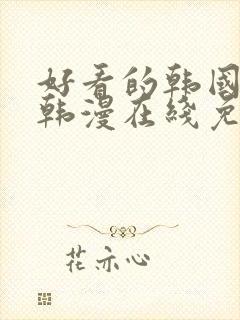 好看的韩国
韩漫在线免
花亦心